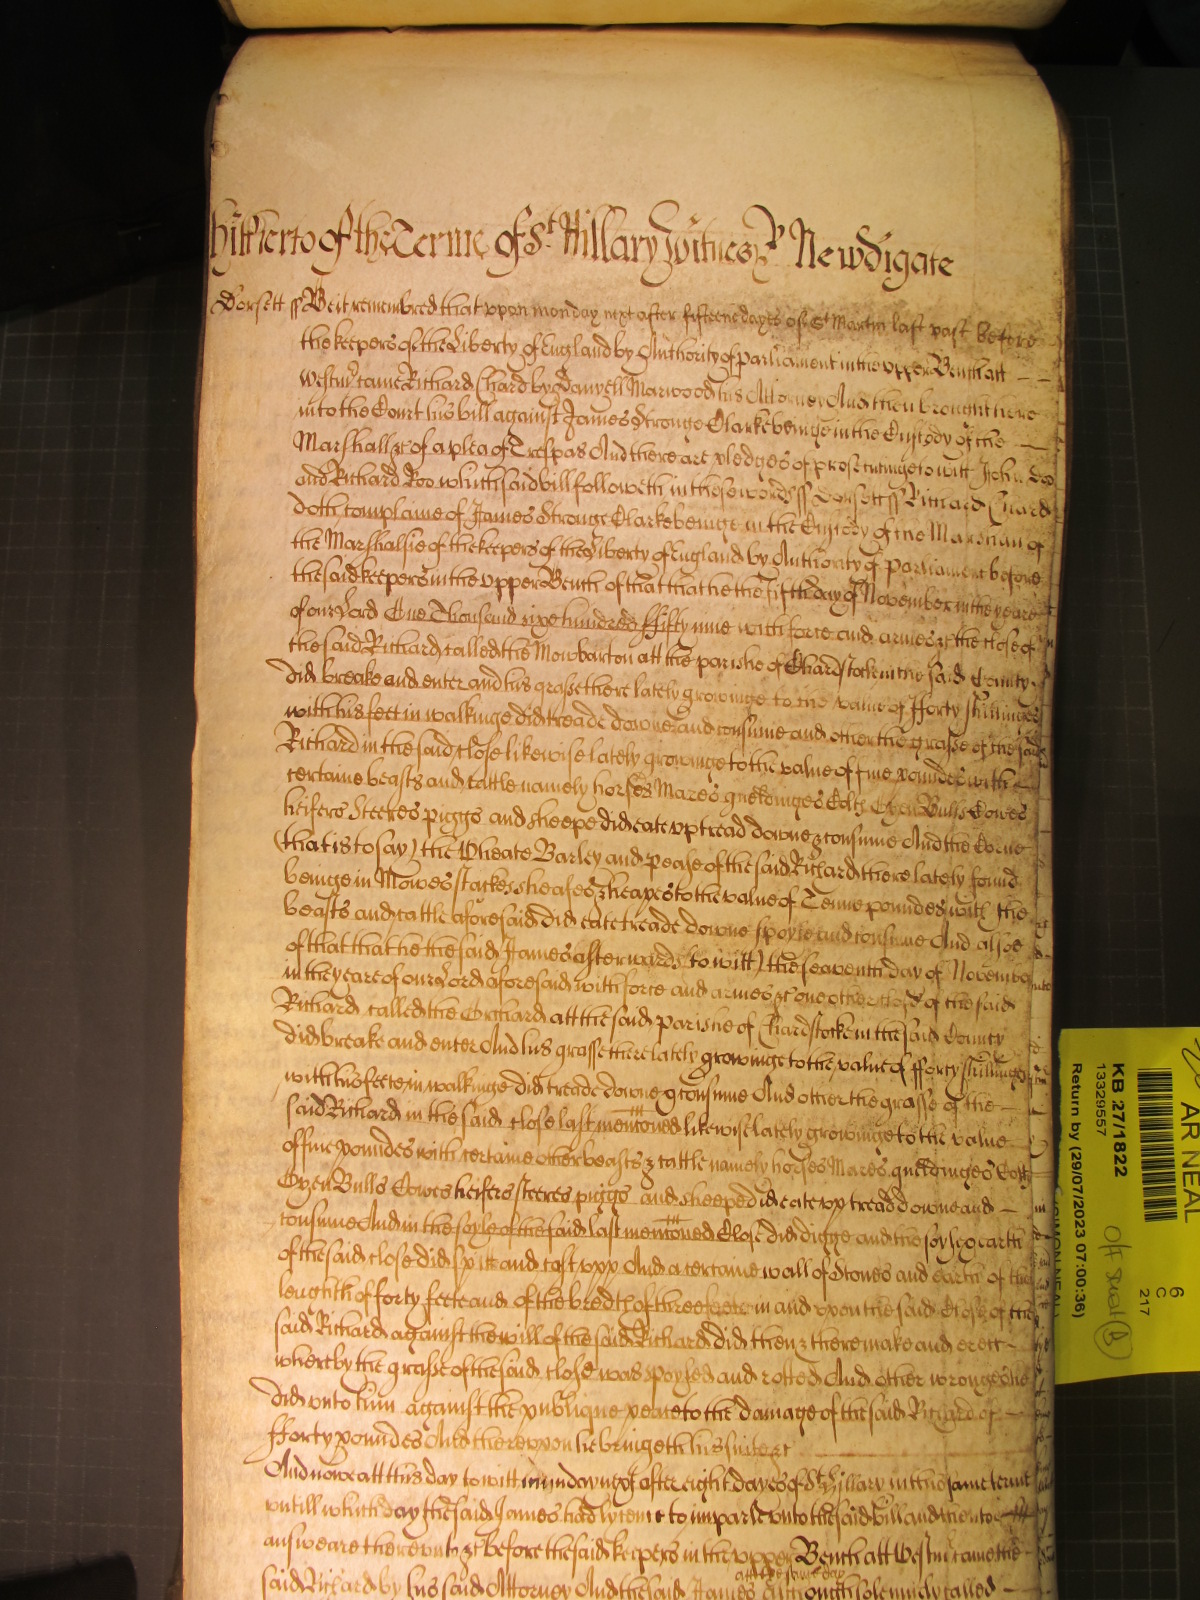 hitherto of the Terme of St Hillary Witnes R Newdigate
Dorsett ss Be it remembred that upon monday next after fifteene dayes of St Martin last past before
the keepers of the Liberty of England by Authority of parliament in the upper Bench att
Westmr came Richard Chard by Danyell Marwood his Attorney And then brought here
into the Court his bill against James Stronge Clarke beinge in the Custody of the
Marshall &c of a plea of Trespas And there are pledges of prosecutinge to witt John Doo
and Richard Roo which said bill followeth in these wordes ss Dorsett ss Richard Chard
doth complaine of James Stronge Clarke beinge in the Custody of the Marshall of
the Marshalsie of the keepers of the Liberty of England by Authority of parliament before
the said keepers in the upper Bench of that that he the fifth day of November in the yeare
of our Lord One Thousand sixe hundred fifty nine with force and armes &c the close of
the said Richard called the Mowbarton att the parishe of Chardstocke in the said County
did breake and enter and his grasse there lately growinge to the value of fforty shillinges
with his feet in walkinge did treade downe and consume and other the grasse of the said
Richard in the said close likewise lately growinge to the value of five poundes with
certaine beasts and cattle namely horses Mares gueldinges Colts Oxen Bulls Cowes
heifers Steeres piggs and sheepe did eate upp tread downe & consume And the Corne
(that is to say) the Wheate Barley and pease of the said Richard there lately found
beinge in Mowes stackes sheafes & heapes to the value of Tenne poundes with the
beasts and cattle aforesaid did eate treade downe spoyle and consume And alsoe
of that that he the said James afterwards (to witt) the seaventh day of November
in the yeare of our Lord aforesaid with force and armes &c one other close of the said
Richard called the Orchard att the said parishe of Chardstocke in the said County
did breake and enter And his grasse there lately growinge to the value of fforty shillinges
with his feete in walkinge did treade downe & consume And other the grasse of the
said Richard in the said close last mencioned likewise lately growinge to the value
of five poundes with certaine other beasts & cattle namely horses Mares gueldinges Colts
Oxen Bulls Cowes heifers steeres piggs and sheepe did eate up tread downe and
consume And in the soyle of the said last mencioned Close did digge and the soyle & earth
of the said close did spitt and cast upp And a certaine wall of Stones and earth of the
lenghth of forty feete and of the bredth of three feete in and upon the said Close of the
said Richard against the will of the said Richard did then & there make and erect
whereby the grasse of the said close was spoyled and rotted And other wronges he
did unto him against the publique peace to the damage of the said Richard of
fforty poundes And thereupon he bringeth his suite &c
And nowe att this day to witt munday next after eight dayes of St Hillary in this same terme
untill which day the said James had lycence to imparle unto the said bill and then to
answeare thereunto &c before the said keepers in the upper Bench att Westmr came the
att the same day
said Richard by his said Attorney And the said James although solemnely called
AR NEAL
6
C
217
KB 27/1822
13329557
Return by (29/07/2023 07:00:36)